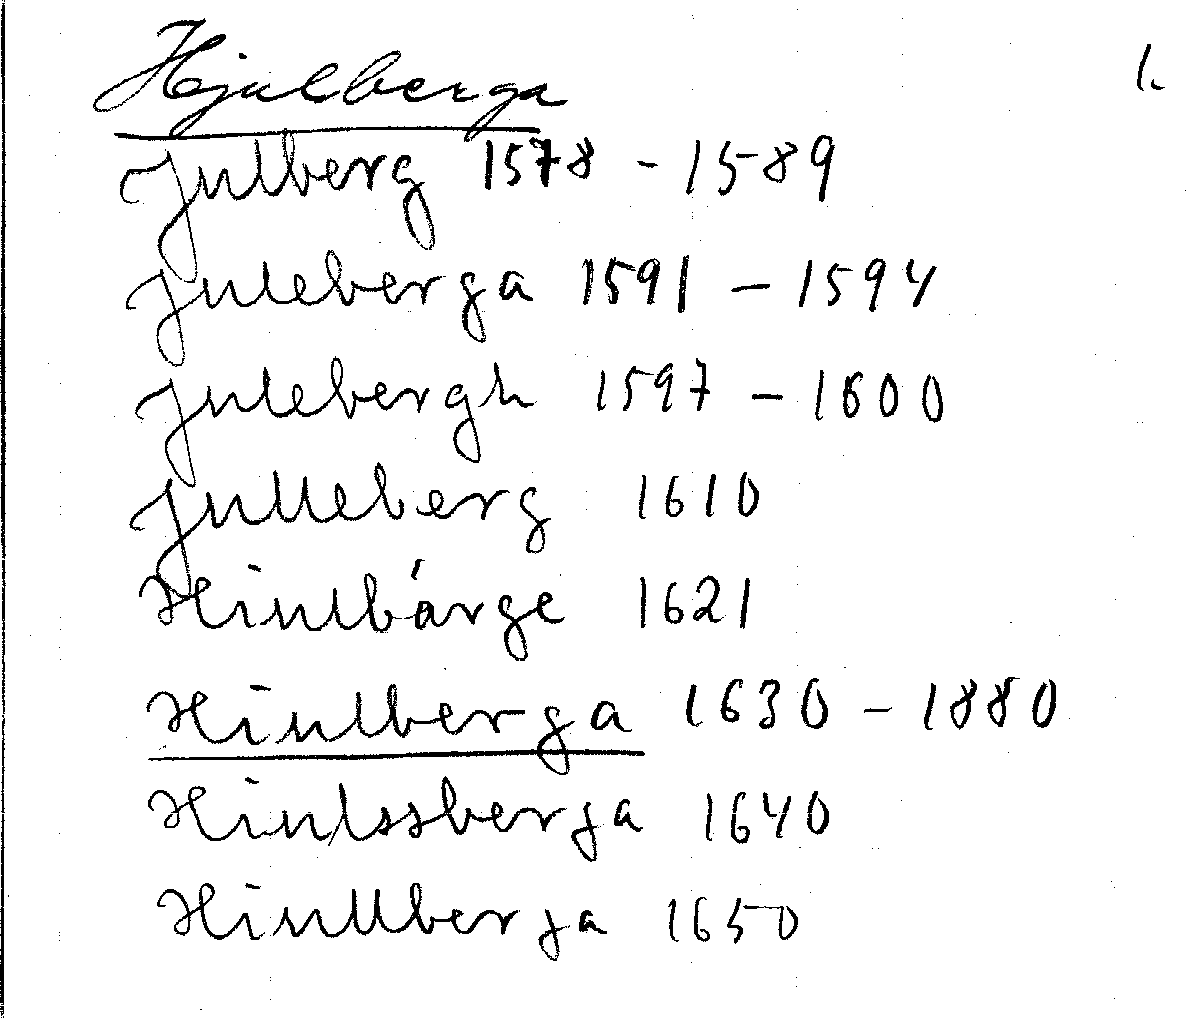 Hjulberga 1.
Julberg 1578 - 1589
Juleberga 1591 - 1594
Julebergh 1597 - 1600
Julleberg 1610
Hiulbárge 1621
Hiulberga 1630 - 1880
Hiulssberga 1640
Hiullberga 1650